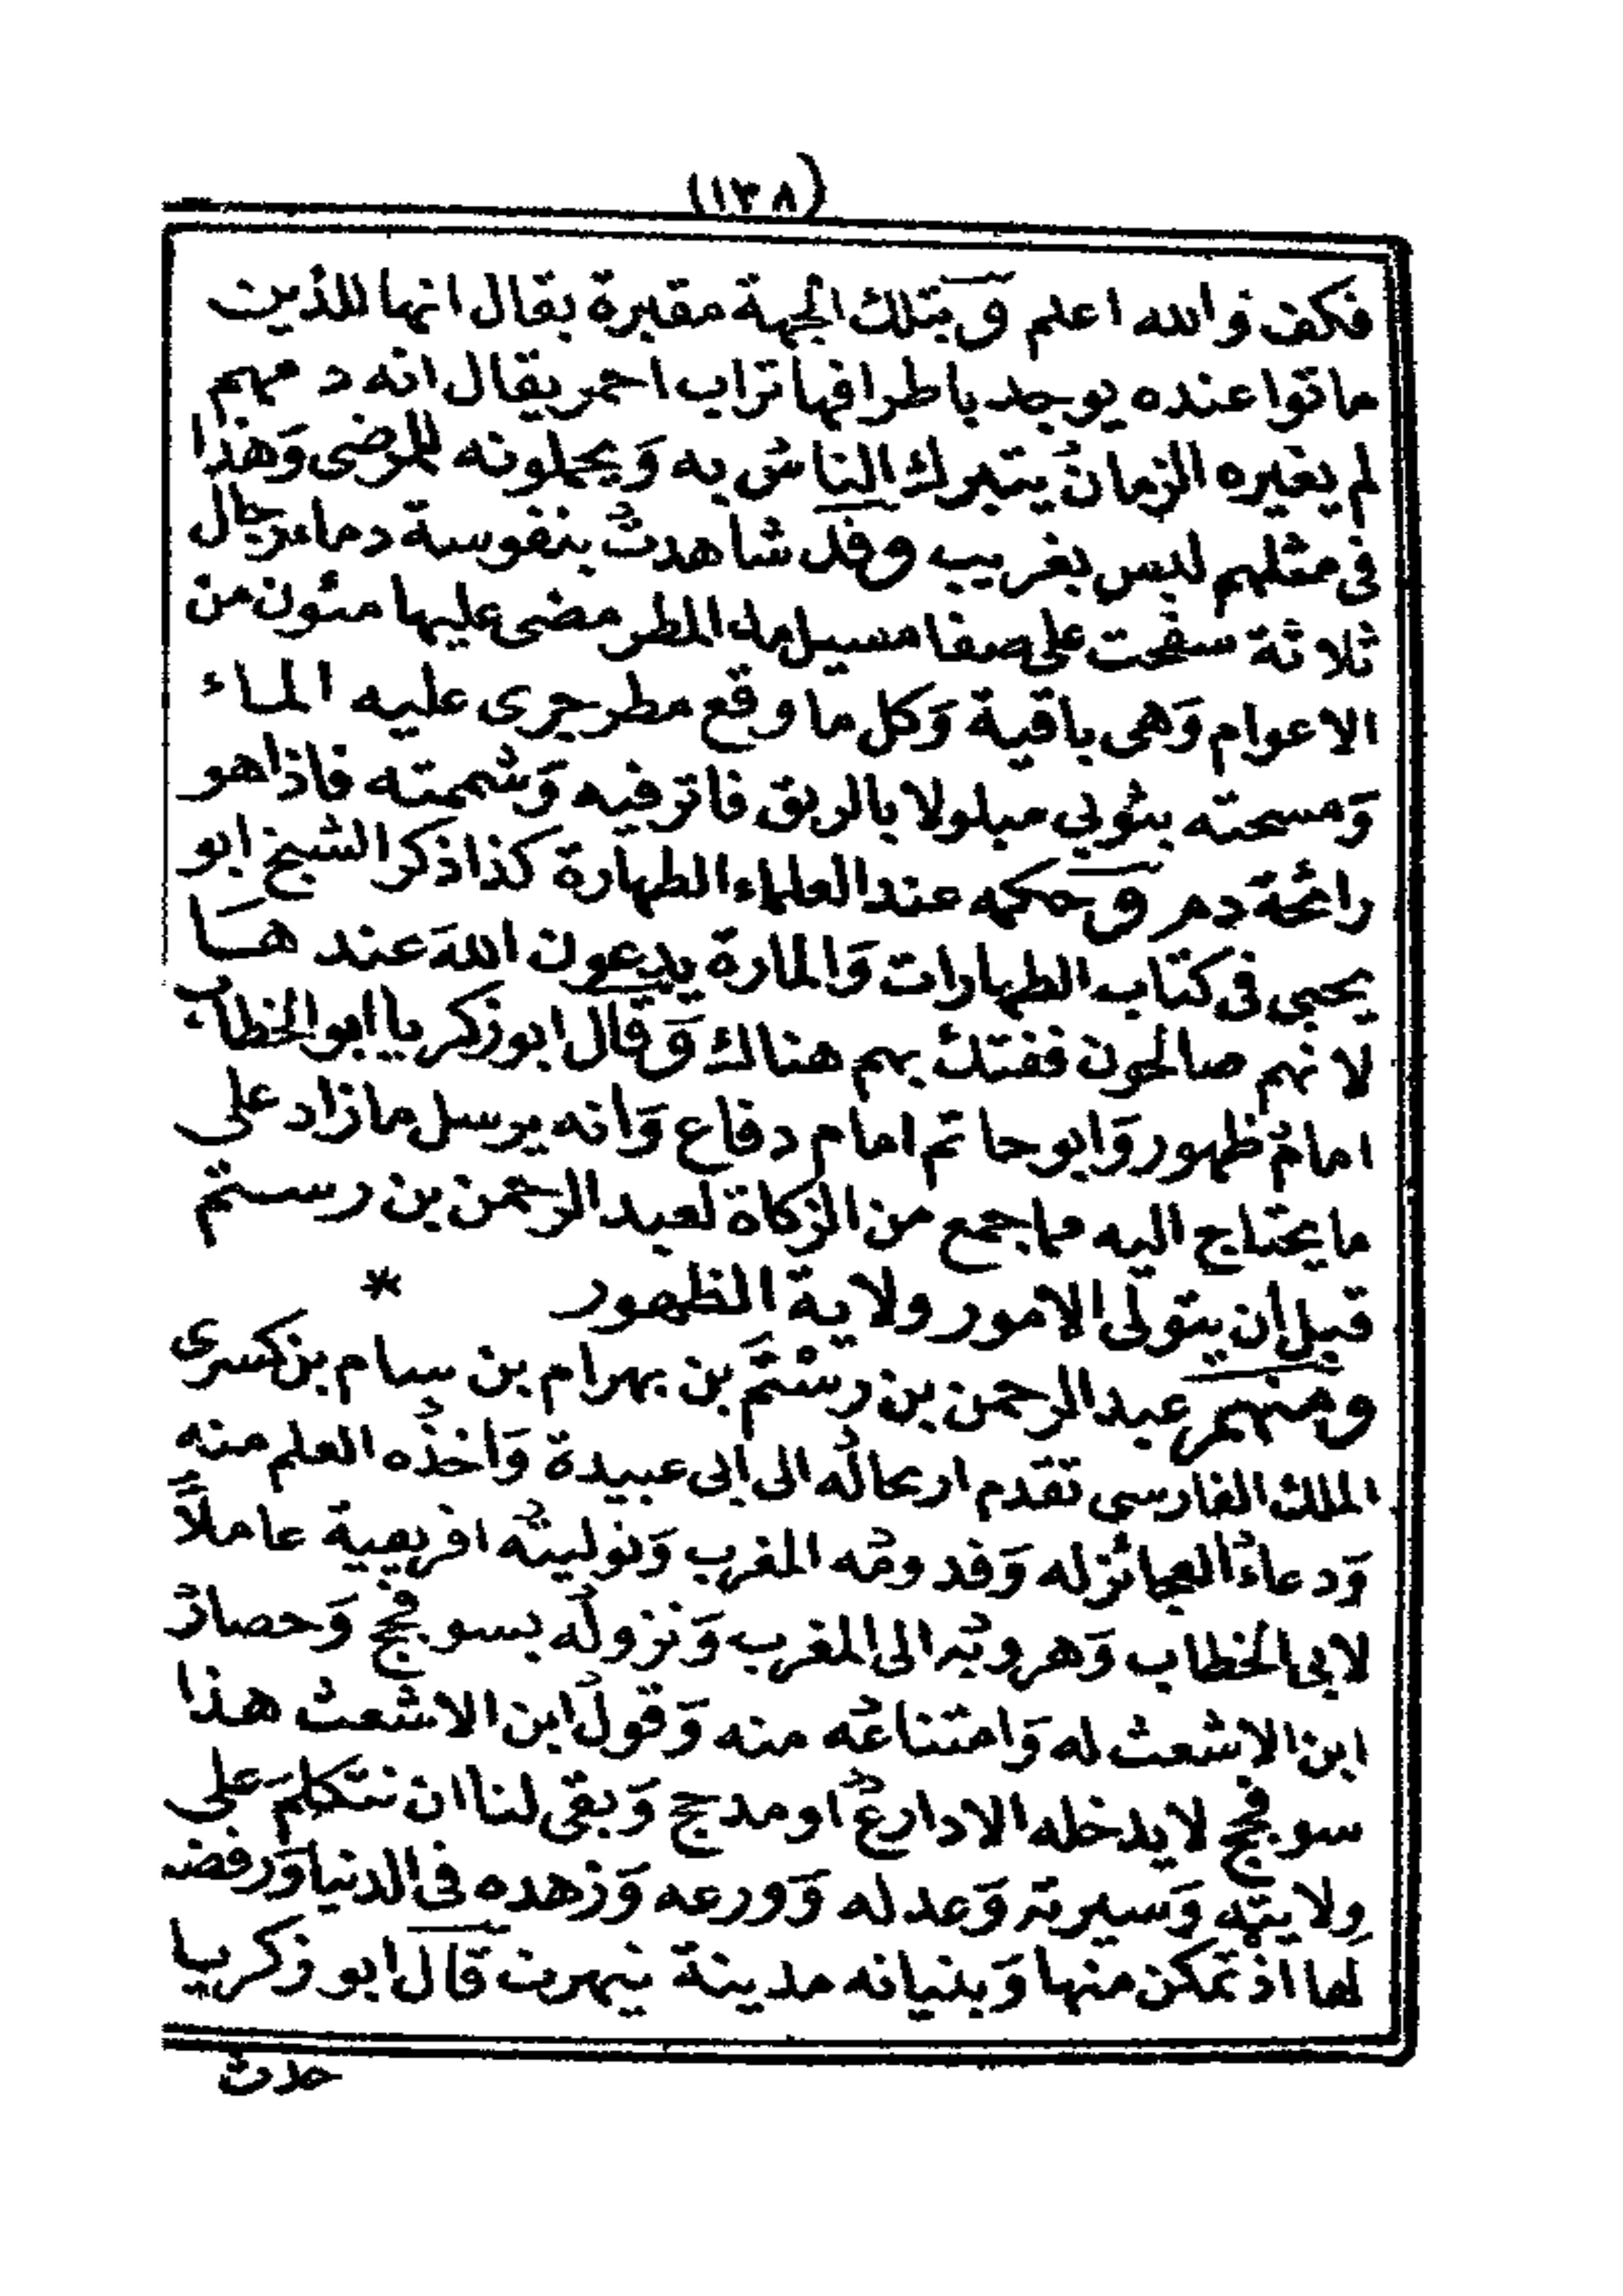 (١٣٨)
فكف فوالله اعلم وَبتلك الجهة مقبرة يقال انها للذين
ماتوا عنده يوجد باطرافها تراب احمر يقال انه دمهم
لم يغيره الزمانُ يتبرك الناسُ به وَيحملونه للمرضى وَهذا
فى مثلهم ليس بغريب وقد شاهدتُ بنفوسة دماء رجال
ثلاثة سفحت على صفا مسيل ماء المطر مضى عليها مئون من
الاعوام وَهى باقية وَكل ما وقع مطر جرى عليه الماء
وَمسحته بثوبي مبلولا بالريق فاثر فيه وَشممته فاذا هو
رائحة دم وَحكمه عند العلماء الطهارة كذا ذكر الشيخ ابو
يحيي فى كتاب الطهارات وَالمارة يدعون اللهَ عند هَا
لانهم صالحون ففتك بهم هناك وَقال ابو زكريا ابو الخطاب
امامُ ظهور وَابو حاتم امام دفاع وَانه يرسل مازاد على
ما يحتاج اليه مما جمع من الزكاة لعبد الرحمن بن رستم
قبل ان يتولى الامور ولاية الظهور *
ومنهم عبد الرحمن بن رسْتَمَ بن بهرام بن سام بن كسرى
الملك الفارسي تقدم ارتحالُه الى ابى عبيدة وَاخذُه العلم منه
وَدعاءُ العجائز له وَقدومُه المغرب وَتوليتُه افريقية عاملاً
لابى الخطاب وَهروبُه الى المغرب وَنزولُه بسوفجج وَحصارُ
ابن الاشعث له وَامتناعُه منه وَقولُ ابن الاشعث هذا
سوفجج لا يدخله الا دارعُ او مدجج وَبقى لنا ان نتكلمَ على
ولايته وَسيرته وَعدله وَورعه وَزهده فى الدنيا وَرفضه
لها اذ تمكن منها وَبنيانه مدينة تيهرت قال ابو زكريا
حدث